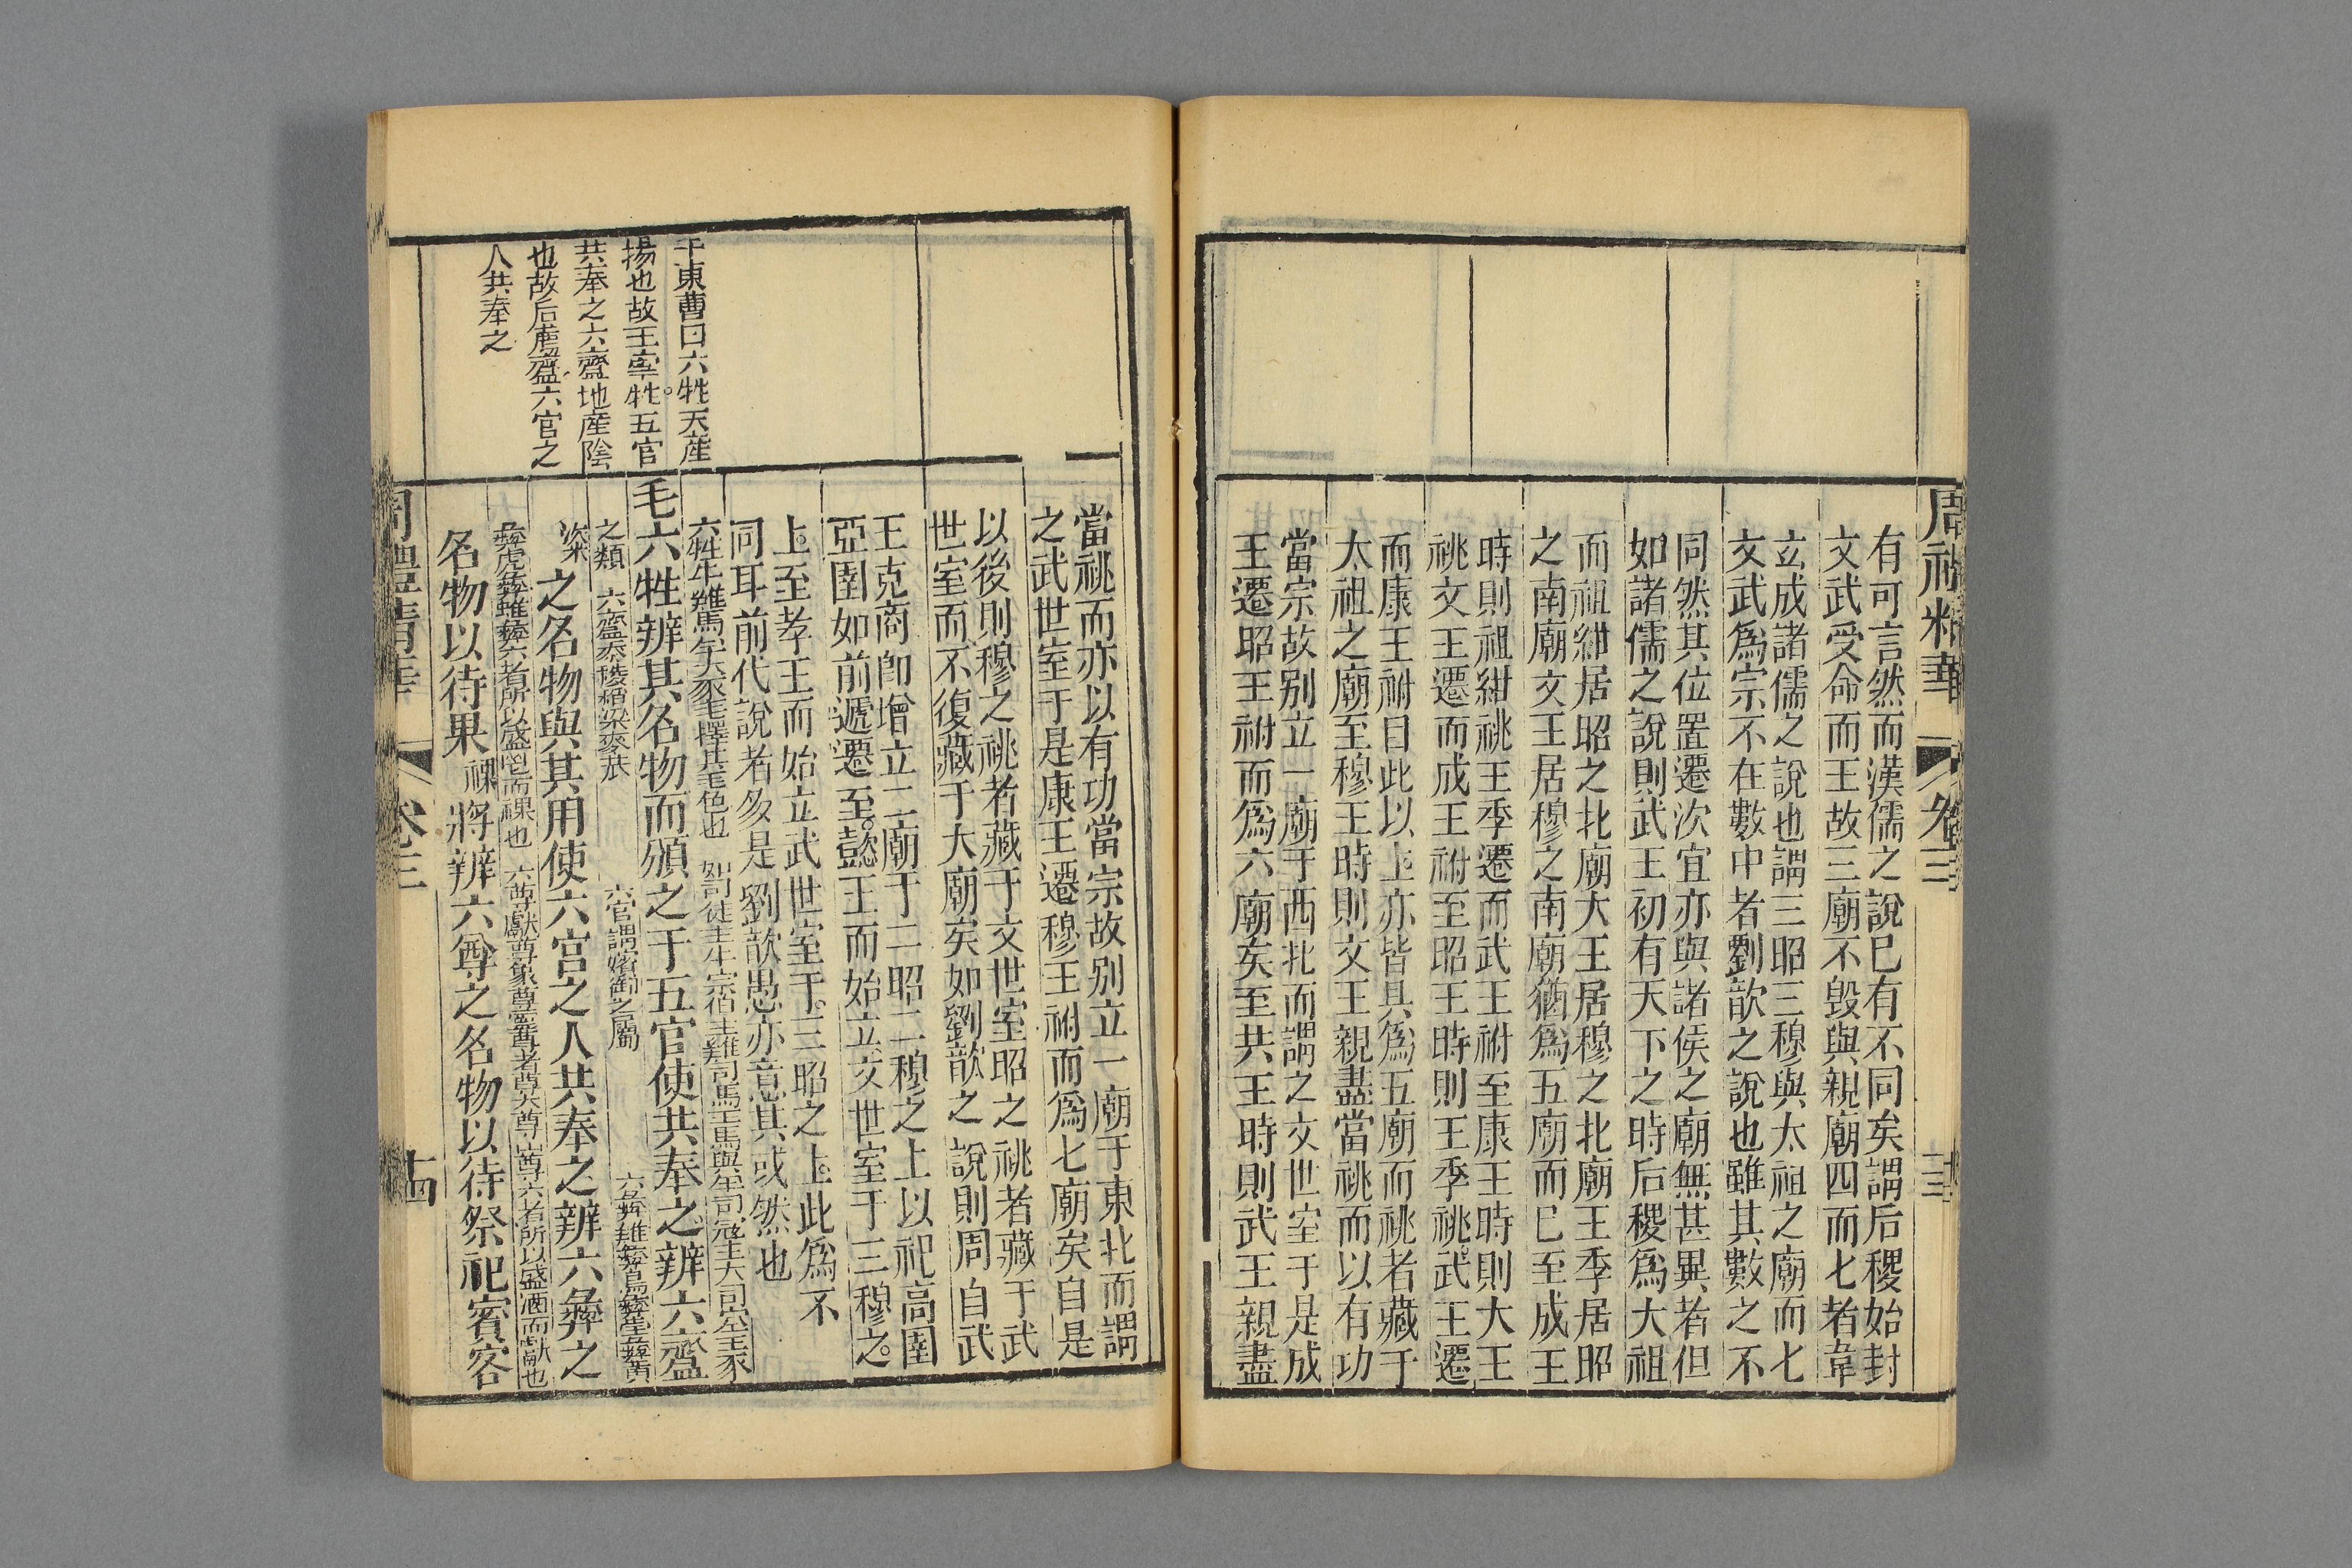 周禮精華
卷三
十三
有可言然而漢儒之說巳有不同矣謂后稷始封
文武受命而王故三廟不毀與親廟四而七者韋
玄成諸儒之說也謂三昭三穆與太祖之廟而七
文武爲宗不在數中者劉歆之說也雖其數之不
同然其位置遷次宜亦與諸侯之廟無甚異者但
如諸儒之說則武王初有天下之時后稷爲大祖
而祖紺居昭之北廟大王居穆之北廟王季居昭
之南廟文王居穆之南廟猶爲五廟而巳至成王
時則祖紺祧王季遷而武王祔至康王時則大王
祧文王遷而成王祔至昭王時則王季祧武王遷
而康王祔自此以上亦皆具爲五廟而祧者藏于
太祖之廟至穆王時則文王親盡當祧而以有功
當宗故别立一廟于西北而謂之文世室于是成
王遷昭王祔而爲六廟矣至共王時則武王親盡
當祧而亦以有功當宗故别立一廟于東北而謂
之武世室于是康王遷穆王祔而爲七廟矣自是
以後則穆之祧者藏于文世室昭之祧者藏于武
世室而不復藏于大廟矣如劉歆之說則周自武
王克商卽增立二廟于二昭二穆之上以祀高圉
亞圉如前遞遷至懿王而始立文世室于三穆之
上至孝王而始立武世室于三昭之上此爲不
同耳前代說者多是劉歆愚亦意其或然也
于東曹曰六牲天產
揚也故王宰牲五官
共奉之六齍地産陰
也故后薦齍六官之
人共奉之
六牲牛雞馬羊犬豕毛擇其毛色也 如司徒主牛宗伯主雞司馬主馬與羊司寇主犬司空主豕
毛六牲辨其名物而頒之于五官使共奉之辨六齍
之類 六齍黍稷稻粱麥苽 六官謂嬪御之屬 六彝雞彝鳥彝斝彝黃
粢之名物與其用使六宮之人共奉之辨六彝之
彝虎彝蜼彝六者所以盛鬯而祼也 六尊獻尊象尊壺尊著尊大尊山尊六者所以盛酒而獻也
名物以待果祼將辨六尊之名物以待祭祀賓客
周禮精華
卷三
十四